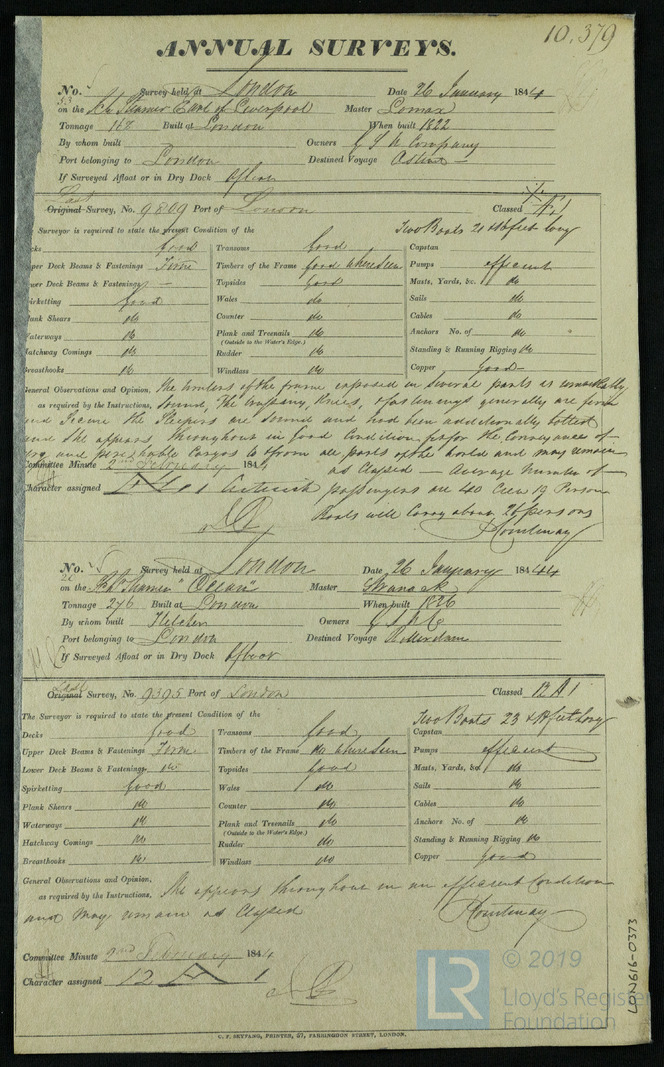 10.379
ANNUAL SURVEYS.
No. Survey held at London Date 26 January 1844
53 on the Steamer Earl of Liverpool Master Lomax
Tonnage 168 Built at London When built 1822
By whom built Owners G S N Company
Port belonging to London Destined Voyage Ostend
If Surveyed Afloat or in Dry Dock Afloat
Last
Original Survey, No. 9869 Port of London Classed
Surveyor is required to state the present Condition of the Two Boats 21 feet long
cks good Transoms good Capstan
per Deck Beams & Fastenings Firm Timbers of the Frame good where seen Pumps efficient
wer Deck Beams & Fastenings — Topsides good Masts, Yards, &c. do
irketting good Wales do Sails do
lank Shears do Counter do Cables do
aterways do Plank and Treenails do Anchors No. of do
(Outside to the Water's Edge.)
atchway Comings do Rudder do Standing & Running Rigging do
reasthooks do Windlass do Copper good
General Observations and Opinion, The timbers of the frame exposed in several parts is remarkably
as required by the Instructions, sound, The Knees, & fastenings generally are firm
and secure the sleepers are sound and had been additionally bolted
and she appears throughout in good Condition fit for the Conveyance of
dry and perishable Cargos to & from all parts of the world and may remain
Committee Minute 2nd February 1844 as Classed — Average number of
Character assigned passengers are 40 Crew 19 Persons
Boats will Carry about 26 persons
Courtenay
No. Survey held at London Date 26 January 1844
on the Steamer "Ocean" Master
Tonnage 276 Built at London When built 1826
By whom built Fletcher Owners G S N C
Port belonging to London Destined Voyage Rotterdam
If Surveyed Afloat or in Dry Dock Afloat
Last
Original Survey, No. 9395 Port of London Classed 12 A 1
The Surveyor is required to state the present Condition of the Two Boats 23 feet long
Decks good Transoms good Capstan
Upper Deck Beams & Fastenings Firm Timbers of the Frame do where seen Pumps efficient
Lower Deck Beams & Fastenings do Topsides good Masts, Yards, &c. do
Spirketting good Wales do Sails do
Plank Shears do Counter do Cables do
Waterways do Plank and Treenails do Anchors No. of do
(Outside to the Water's Edge.)
Hatchway Comings do Rudder do Standing & Running Rigging do
Breasthooks do Windlass do Copper good
General Observations and Opinion,
as required by the Instructions, She appears throughout in an efficient Condition
and may remain as Classed Courtenay
Committee Minute 2nd February 1844
Character assigned 12 A 1
C. F. SEYFANG, PRINTER, 57, FARRINGDON STREET, LONDON.
LON616-0373
LR © 2019
Lloyd's Register
Foundation